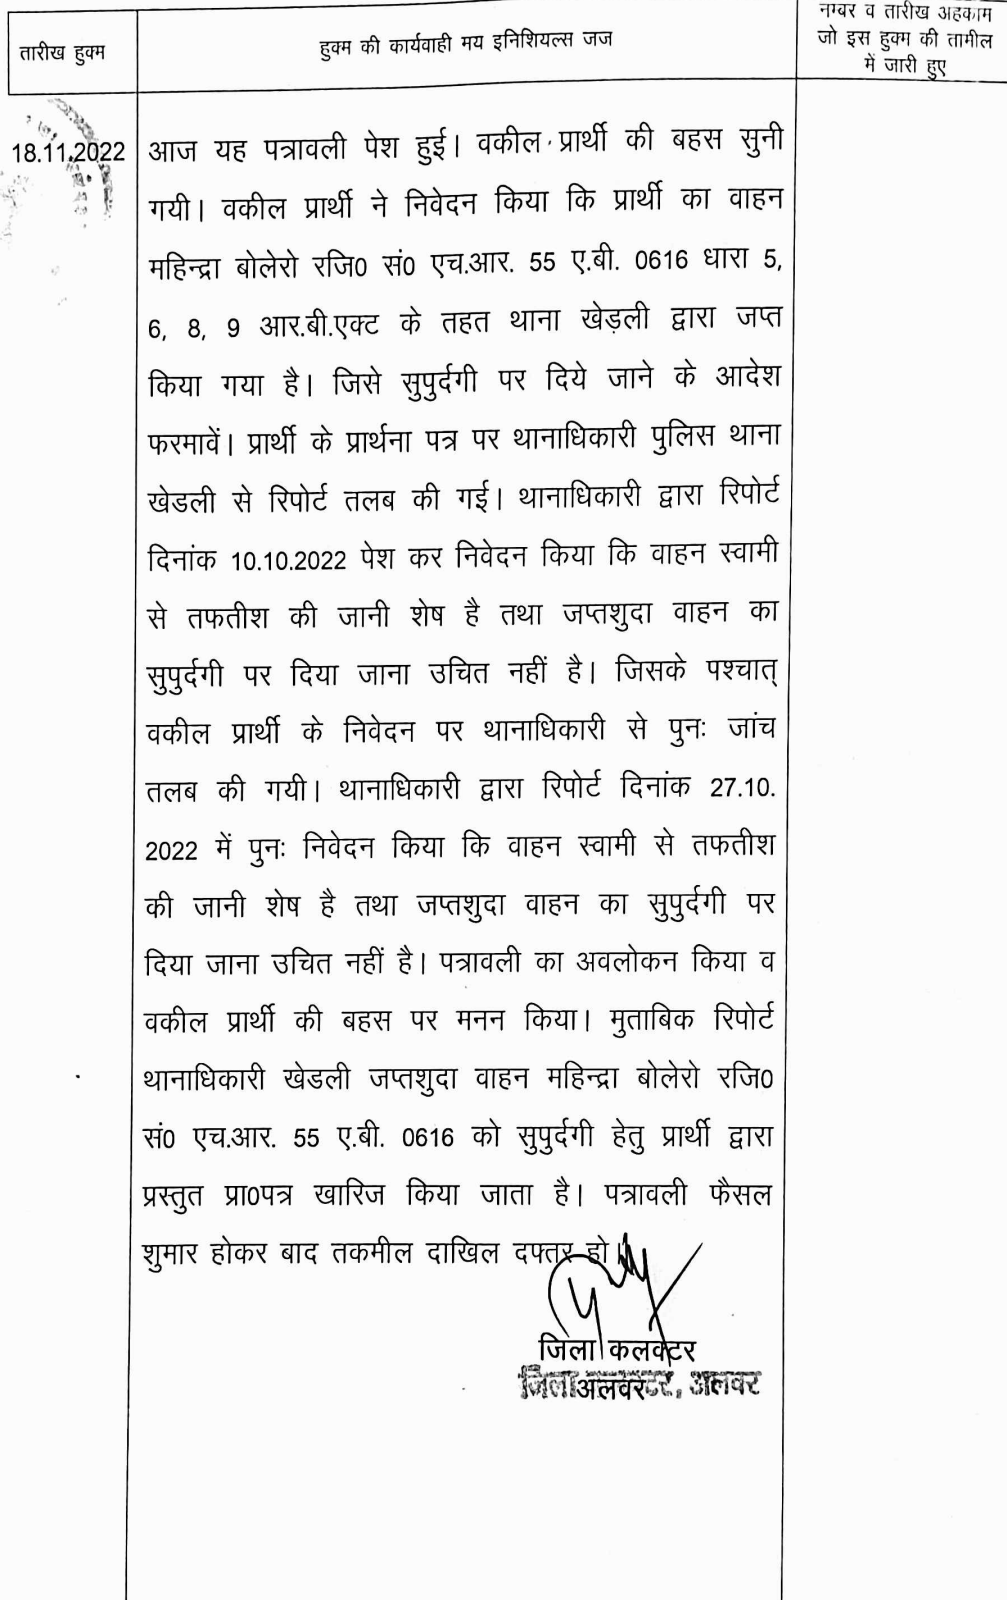 तारीख हुक्म
हुक्म की कार्यवाही मय इनिशियल्स जज
नम्बर व तारीख अहकाम
जो इस हुक्म की तामील
में जारी हुए
18.11.2022
आज यह पत्रावली पेश हुई। वकील प्रार्थी की बहस सुनी
गयी। वकील प्रार्थी ने निवेदन किया कि प्रार्थी का वाहन
महिन्द्रा बोलेरो रजि0 सं0 एच.आर. 55 ए.बी. 0616 धारा 5,
6, 8, 9 आर.बी.एक्ट के तहत थाना खेड़ली द्वारा जप्त
किया गया है। जिसे सुपुर्दगी पर दिये जाने के आदेश
फरमावें। प्रार्थी के प्रार्थना पत्र पर थानाधिकारी पुलिस थाना
खेडली से रिपोर्ट तलब की गई। थानाधिकारी द्वारा रिपोर्ट
दिनांक 10.10.2022 पेश कर निवेदन किया कि वाहन स्वामी
से तफतीश की जानी शेष है तथा जप्तशुदा वाहन का
सुपुर्दगी पर दिया जाना उचित नहीं है। जिसके पश्चात्
वकील प्रार्थी के निवेदन पर थानाधिकारी से पुनः जांच
तलब की गयी। थानाधिकारी द्वारा रिपोर्ट दिनांक 27.10.
2022 में पुनः निवेदन किया कि वाहन स्वामी से तफतीश
की जानी शेष है तथा जप्तशुदा वाहन का सुपुर्दगी पर
दिया जाना उचित नहीं है। पत्रावली का अवलोकन किया व
वकील प्रार्थी की बहस पर मनन किया। मुताबिक रिपोर्ट
थानाधिकारी खेडली जप्तशुदा वाहन महिन्द्रा बोलेरो रजि0
सं0 एच.आर. 55 ए.बी. 0616 को सुपुर्दगी हेतु प्रार्थी द्वारा
प्रस्तुत प्रा0पत्र खारिज किया जाता है। पत्रावली फैसल
शुमार होकर बाद तकमील दाखिल दफ्तर हो।
जिला कलक्टर
अलवर
जिला कलक्टर, अलवर